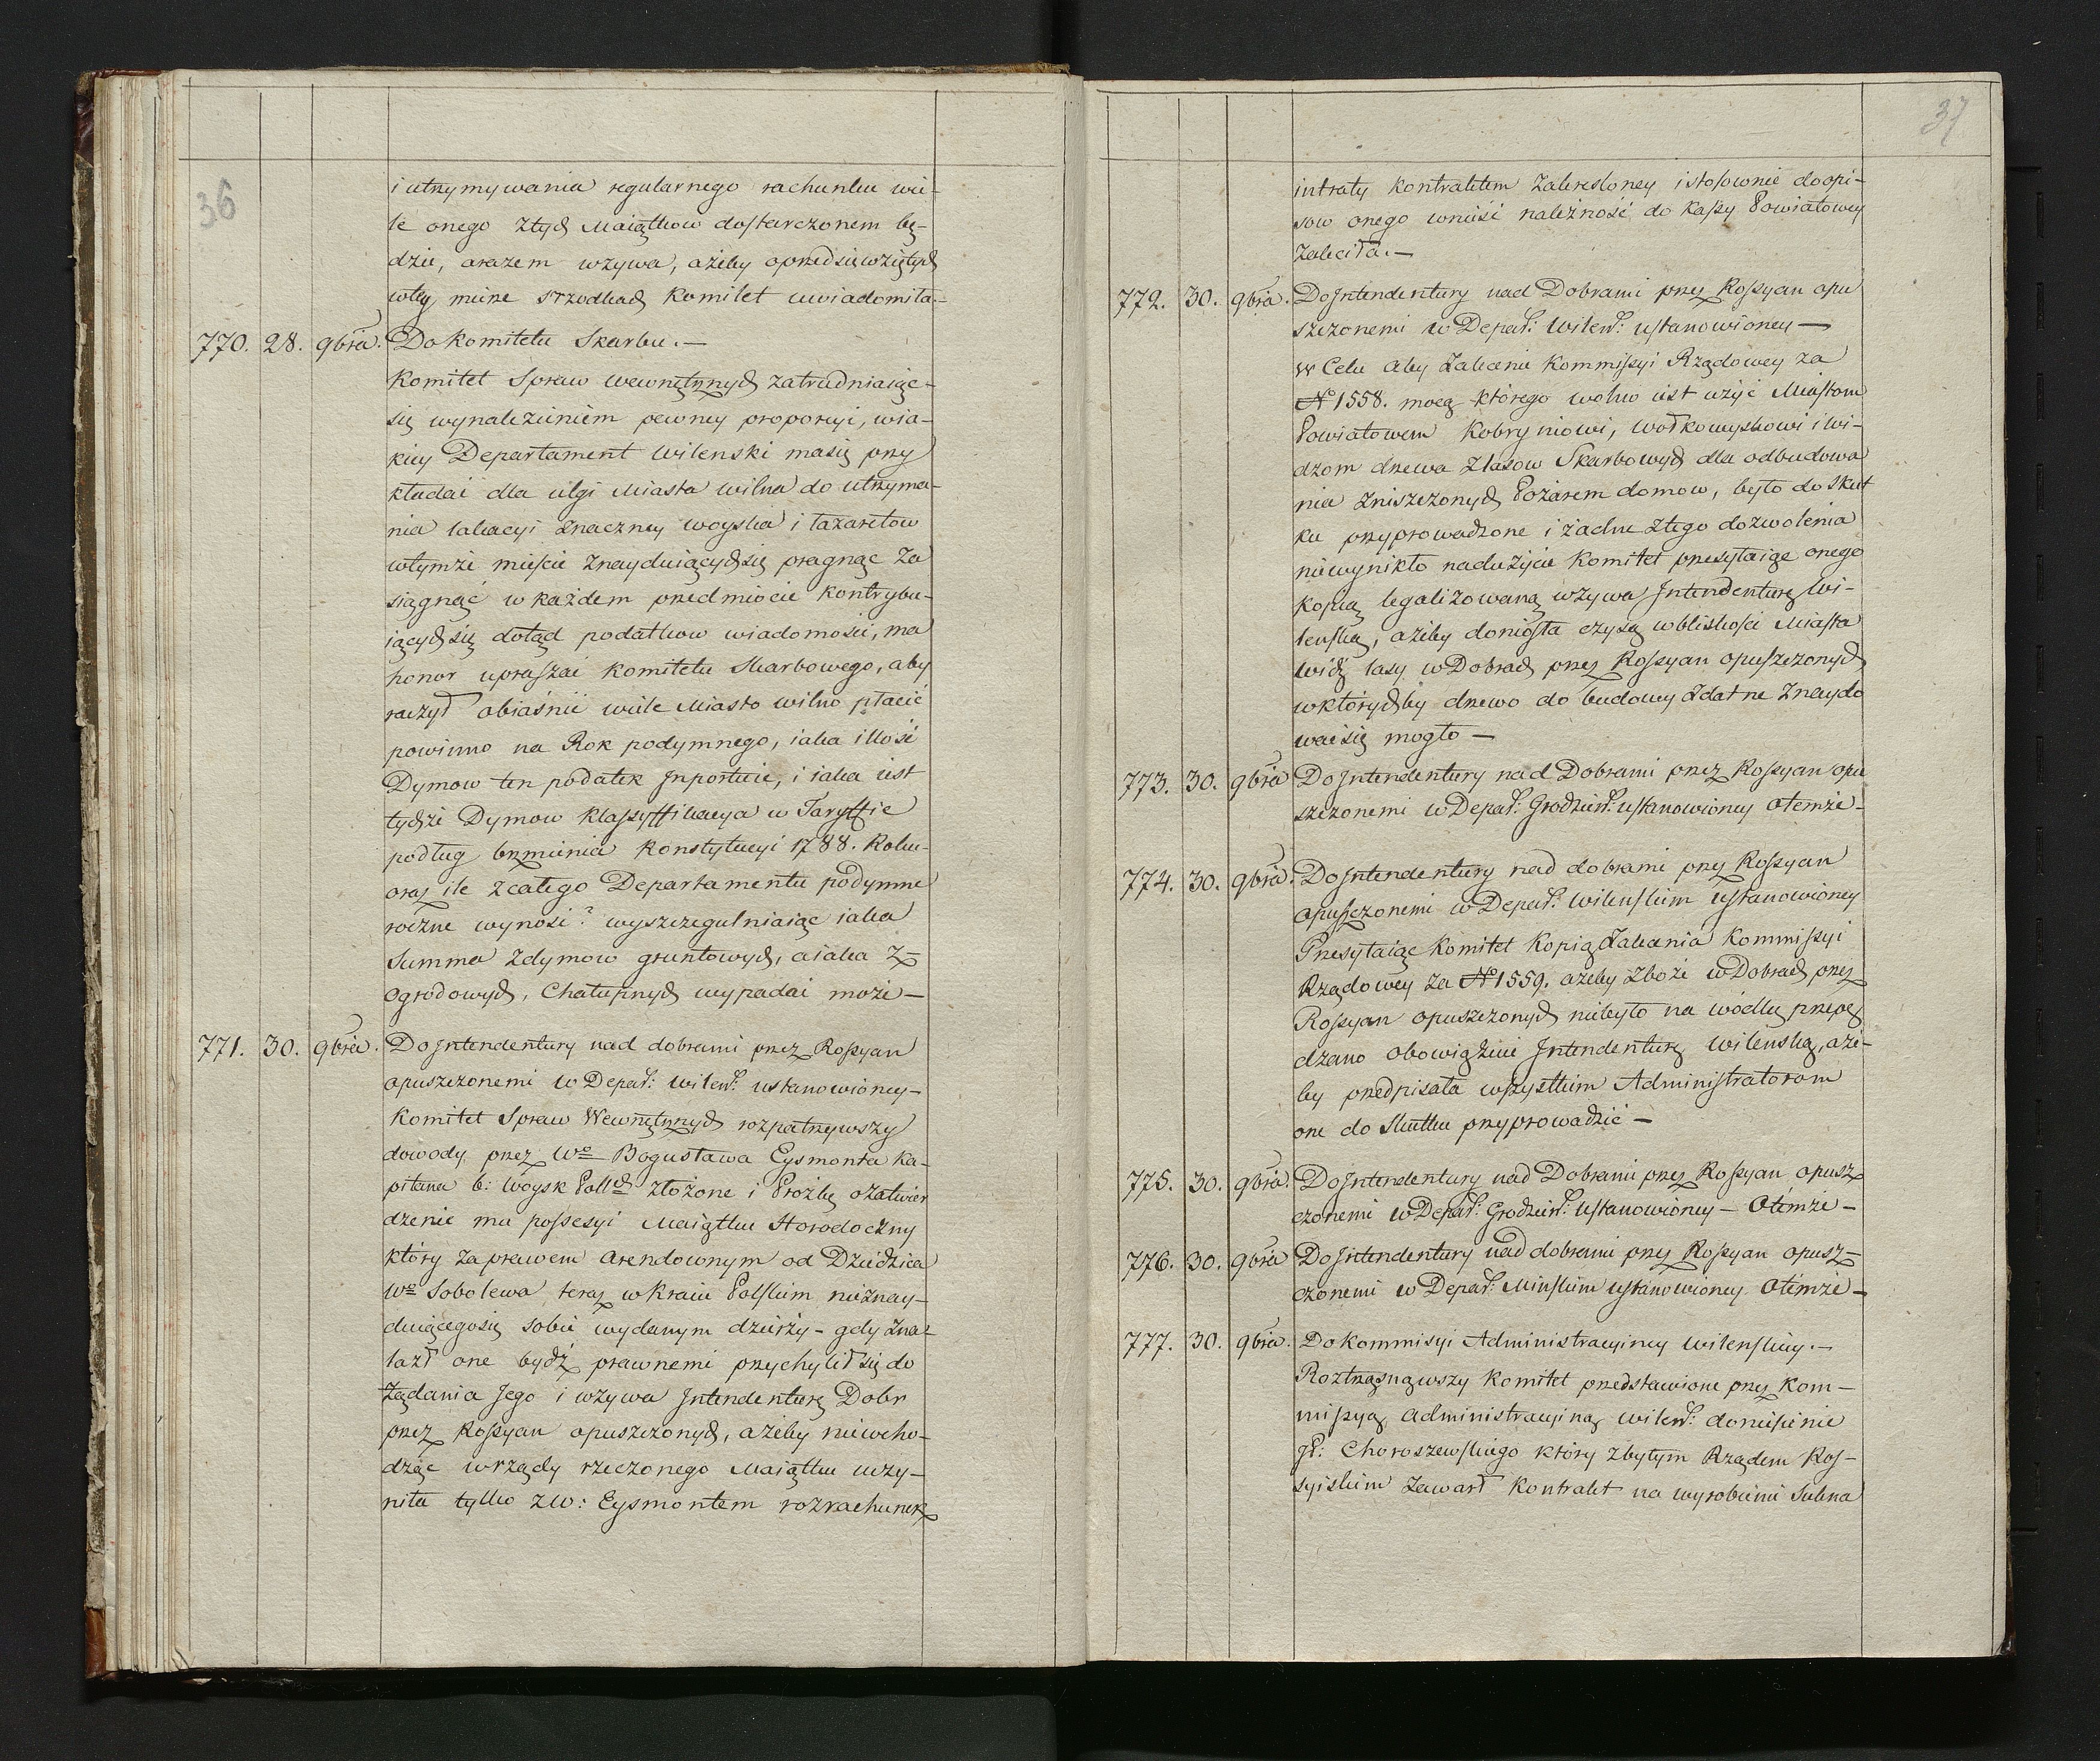 36
i utrzymywania regularnego rachunku wie-
le onego z tych Maiątkow dostarczonem bę-
dzie, a razem wzywa, ażeby o przedsięwziętych
w tey mierze srzodkach Komitet uwiadomiła.-
770. 28. 9bra. Do Komitetu Skarbu.-
Komitet Spraw wewnętrznych zatrudniaiąc-
się wynalezieniem pewney proporcyi, w ia-
kiey Departament Wilenski ma się przy
kładać dla ulgi Miasta Wilna do utrzyma-
nia lakacyi znaczney woyska i lazaretow
w tymże mieście znayduiących się pragnąc za
siągnąć w każdem przedmiocie kontrybu-
iących się dotąd podatkow wiadomości, ma
honor upraszać Komitetu Skarbowego, aby
raczył obiaśnić wiele Miasto Wilno płacić
powinno na Rok podymnego, iaka illość
Dymow ten podatek Inportuie, i iaka iest
tychże Dymow klassyffikacya w Taryffie
podług brzmienia Konstytucyi 1788. Roku-
oraz ile z całego Departamentu podymne
roczne wynosi? wyszczegulniaiąc iaka
Summa z dymow gruntowych, a iaka z=
Ogrodowych, Chałupnych wypadać może-
771. 30. 9bra. Do Intendentury nad dobrami przez Rossyan
opuszczonemi w Depar: Wilen: ustanowioney-
Komitet Spraw Wewnętrznych rozpatrzywszy
dowody przez Wo Bogusława Eysmonta Ka-
pitana b: Woysk Pollch złożone i Prożbę o zatwier
dzenie mu possesyi Maiątku Horodoczny
który za prawem Arendownym od Dziedzica
Wo Sobolewa teraz w kraiu Polskim nieznay-
duiącego się sobie wydanym dzierży- gdy zna-
lazł one bydź prawnemi przychylił się do
Żądania Jego i wzywa Intendenturę Dobr
przez Rossyan opuszczonych, ażeby niewcho-
dząc w rządy rzeczonego Maiątku uczy-
niła tylko z W: Eysmontem rozrachunek
37
intraty Kontraktem zakresloney i stosownie do opi-
sow onego wnieść należność do Kassy Powiatowey
zaleciła.-
772. 30. 9bra. Do Intendentury nad Dobrami przez Rossyan opu
szczonemi w Depar: Wilen: ustanowioney-
W Celu aby zalecenie Kommissyi Rządowey za
No 1558. mocą którego wolno iest użyć Miastom
Powiatowem Kobryniowi, Wołkowyskowi i Wi-
dzom drzewa z lasow Skarbowych dla odbudowa
nia zniszczonych Pożarem domow, było do skut
ku przyprowadzone i żadne z tego dozwolenia
niewynikło nadużycie Komitet przesyłaiąc onego
kopią legalizowaną wzywa Intendenturę Wi-
lenską, ażeby doniosła czy są w bliskości Miasta
Widz lasy w Dobrach przez Rossyan opuszczonych
w których by drzewo do budowy zdatne znaydo
wać się mogło-
773. 30. 9bra Do Intendentury nad Dobrami przez Rossyan opu
szczonemi w Depar: Grodzień: ustanowioney o temże-
774. 30. 9bra. Do Intendentury nad dobrami przez Rossyan
opuszczonemi w Depar: Wilenskim ustanowioney
Przesyłaiąc Komitet Kopią zalecenia Kommissyi
Rządowey za No 1559. ażeby zboże w Dobrach przez
Rossyan opuszczonych niebyło na wódkę przepę
dzano obowiązuie Intendenturę Wilenską, aże-
by przedpisała wszystkim Administratorom
one do Skutku przyprowadzić-
775. 30. 9bra. Do Intendentury nad Dobrami przez Rossyan opusz
czonemi w Depar: Grodzień: ustanowioney - Otemże-
776. 30. 9bra Do Intendentury nad dobrami przez Rossyan opusz=
czonemi w Depar: Minskim ustanowioney. Otemże-
777. 30. 9bra. Do Kommisyi Administracyiney Wilenskiey.-
Roztrząsnąwszy Komitet przedstawione przez Kom-
missyą Administracyiną Wilen: doniesienie
Choroszewskiego który z byłym Rządem Ros-
syiskim zawarł Kontrakt na wyrobienie Sukna